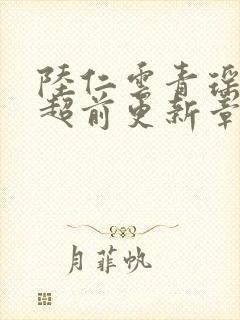 陸仁雲青瑶
超前更新章
月菲帆